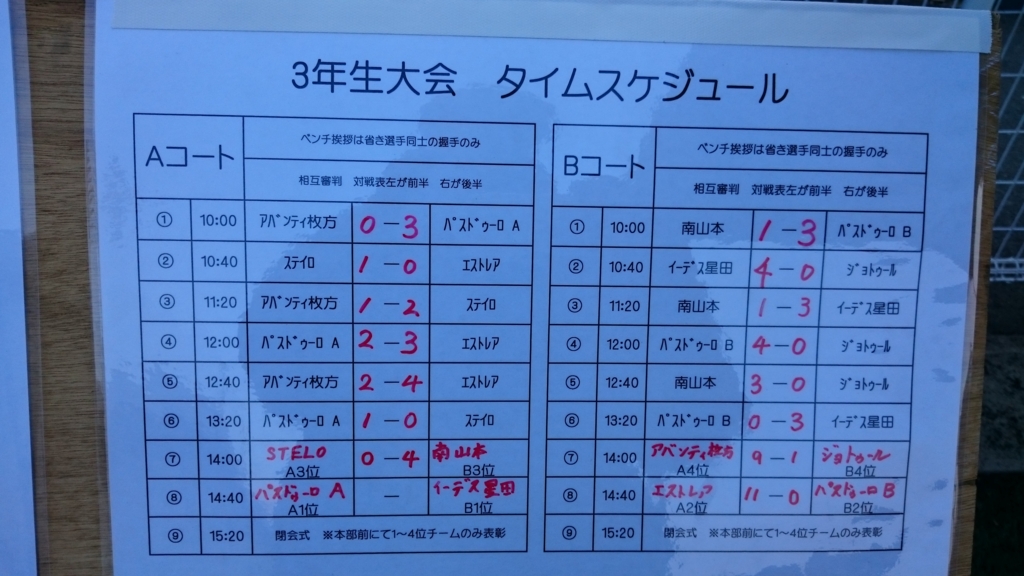 3年生大会　タイムスケジュール
Aコート
ベンチ挨拶は省き選手同士の握手のみ
相互審判　対戦表左が前半　右が後半
① 10:00 アバンティ枚方 0－3 パスドゥーロ A
② 10:40 ステイロ 1－0 エストレア
③ 11:20 アバンティ枚方 1－2 ステイロ
④ 12:00 パスドゥーロ A 2－3 エストレア
⑤ 12:40 アバンティ枚方 2－4 エストレア
⑥ 13:20 パスドゥーロ A 1－0 ステイロ
⑦ 14:00 STELO 0－4 南山本
A3位 B3位
⑧ 14:40 パスドゥーロ A － イーデス星田
A1位 B1位
⑨ 15:20 閉会式　※本部前にて1～4位チームのみ表彰
Bコート
ベンチ挨拶は省き選手同士の握手のみ
相互審判　対戦表左が前半　右が後半
① 10:00 南山本 1－3 パスドゥーロ B
② 10:40 イーデス星田 4－0 ジョトゥール
③ 11:20 南山本 1－3 イーデス星田
④ 12:00 パスドゥーロ B 4－0 ジョトゥール
⑤ 12:40 南山本 3－0 ジョトゥール
⑥ 13:20 パスドゥーロ B 0－3 イーデス星田
⑦ 14:00 アバンティ枚方 9－1 ジョトゥール
A4位 B4位
⑧ 14:40 エストレア 11－0 パスドゥーロ B
A2位 B2位
⑨ 15:20 閉会式　※本部前にて1～4位チームのみ表彰